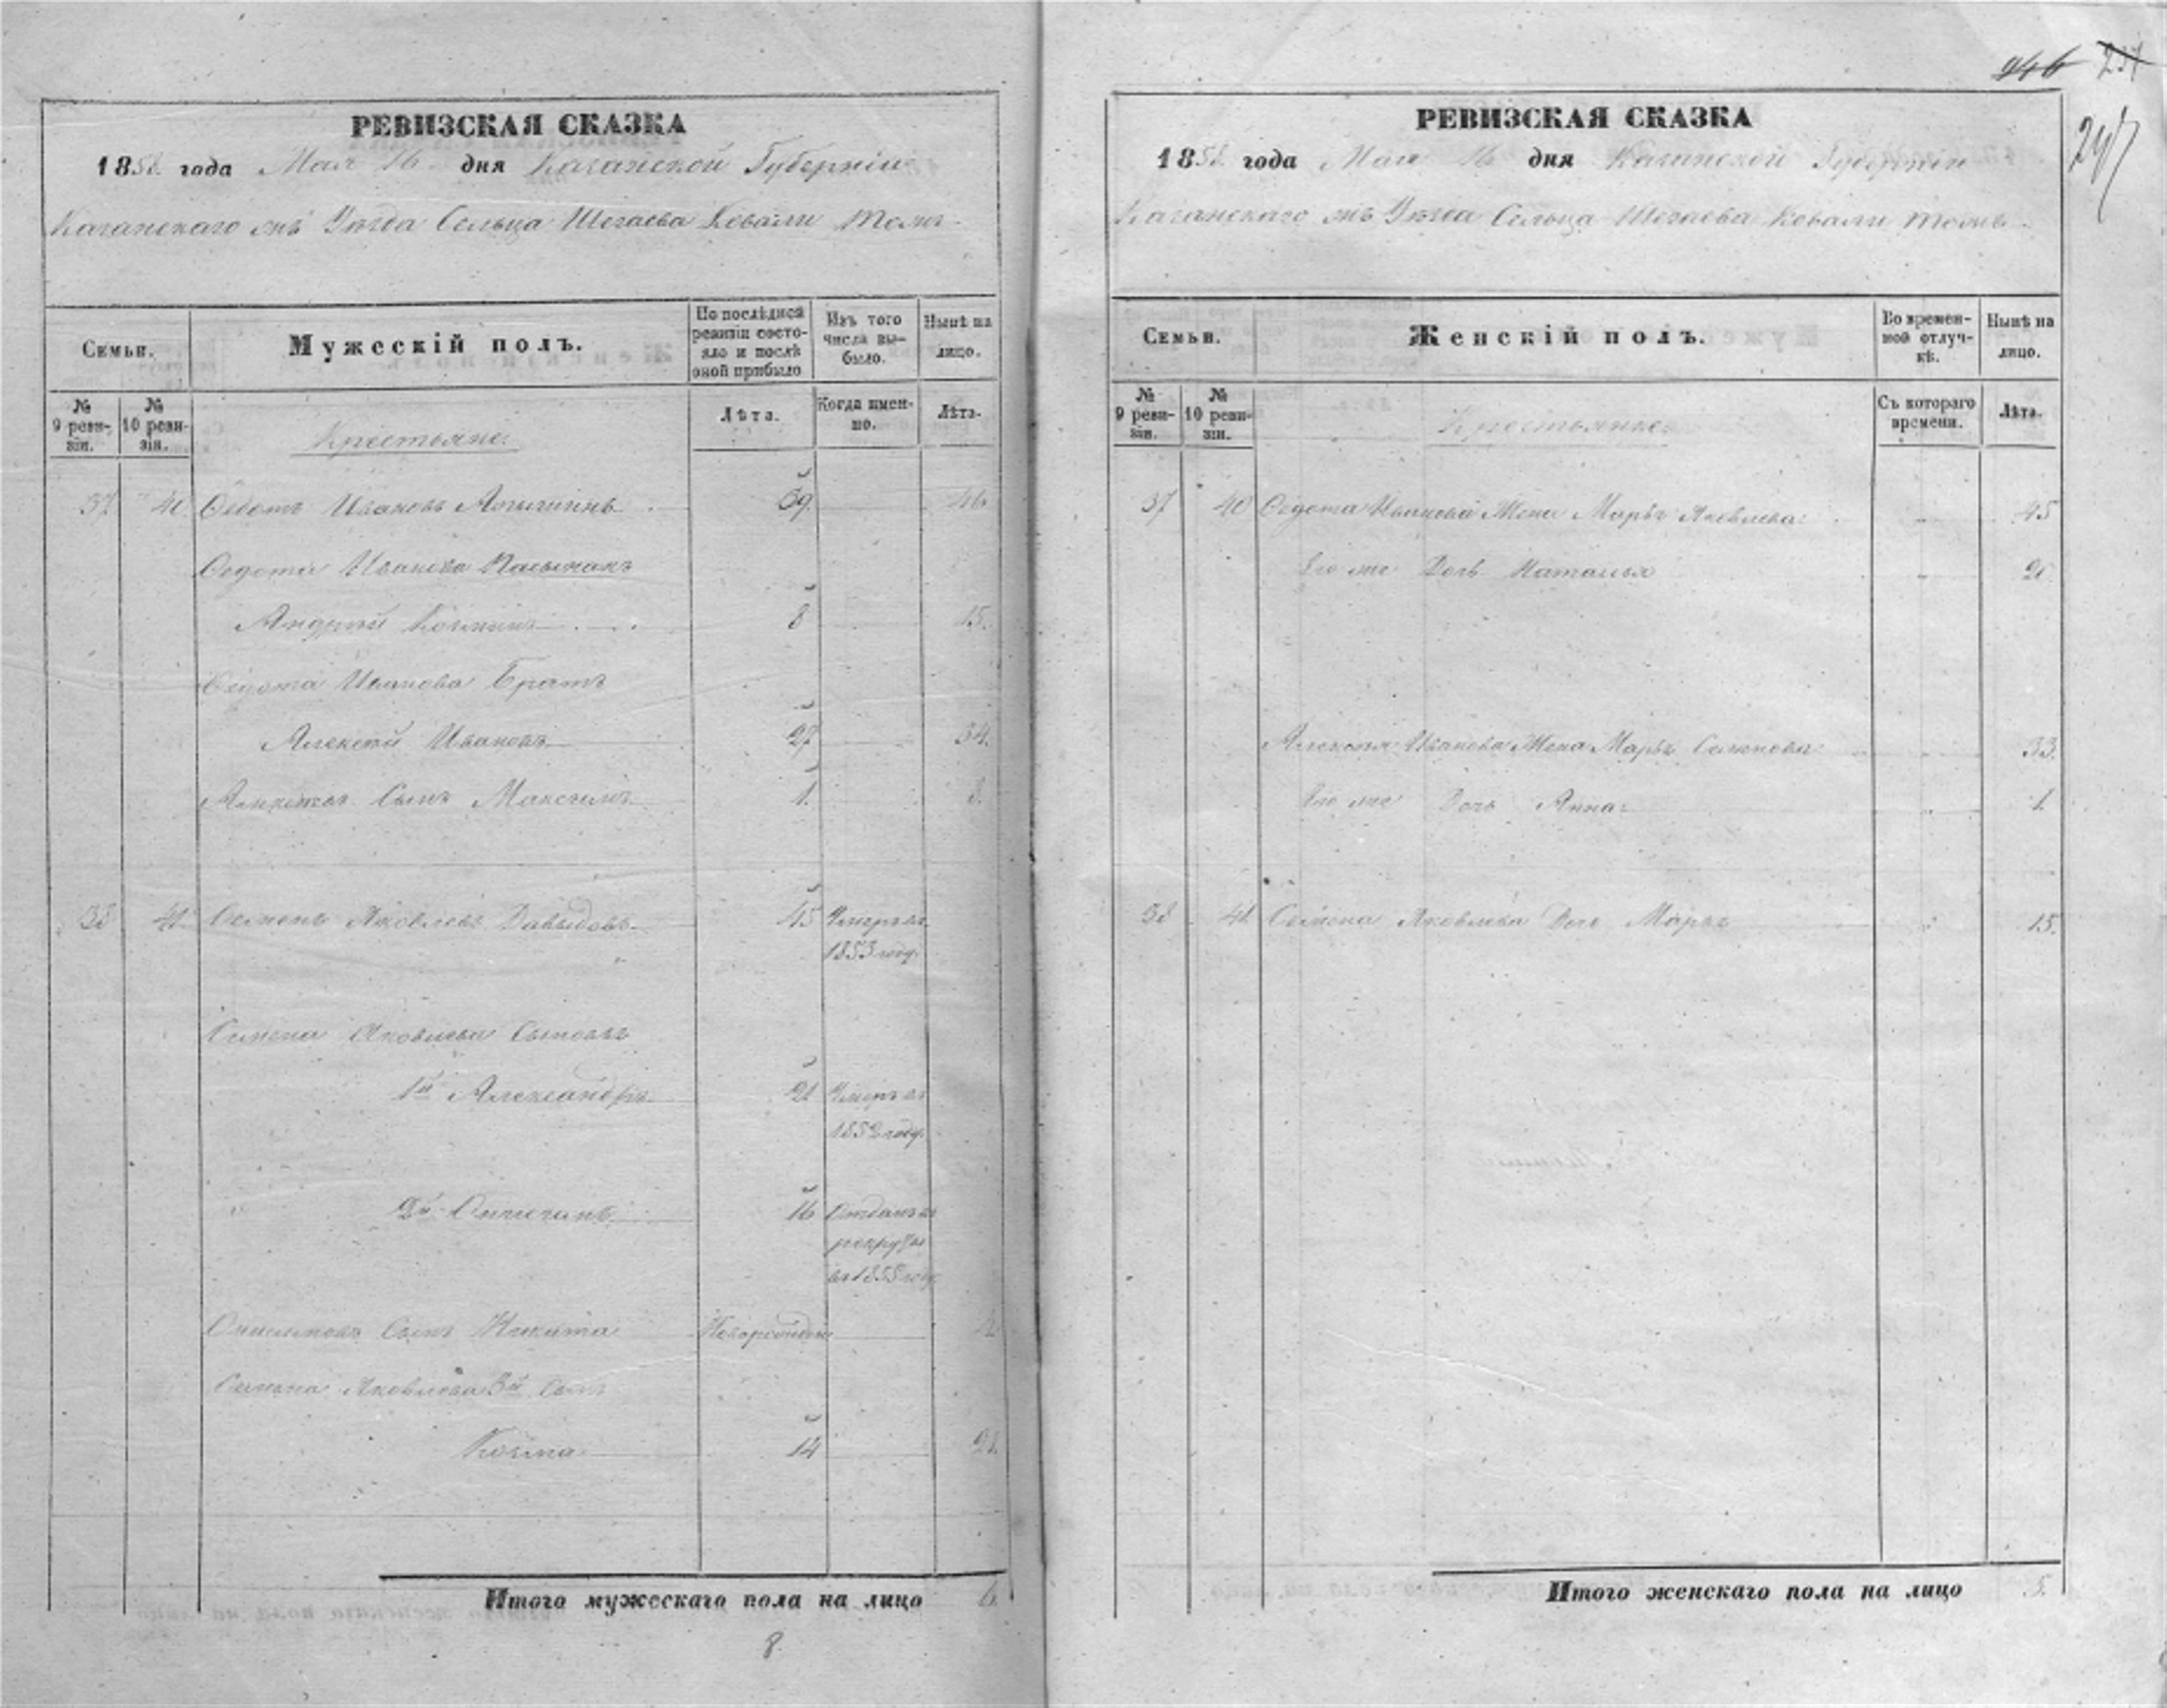 246 237
247
РЕВИЗСКАЯ СКАЗКА
1858 года Мая 16 дня Казанской Губерніи
Казанскаго Уѣзда Сельца Ковали тожъ
Семьи.
Мужескій полъ.
По послѣдней ревизіи состояло и послѣ оной прибыло
Изъ того числа выбыло.
Нынѣ на лицо.
№ 9 ревизіи.
№ 10 ревизіи.
Крестьяне:
Лѣта.
Когда именно.
Лѣта.
37 40 Ѳедотъ Ивановъ 39 46
Ѳедота Иванова
Андрей 8 15.
Ѳедота Иванова Братъ
Алексей Ивановъ 27 34.
Алексея Сынъ Максимъ 1. 8.
38 41 Семенъ Яковлевъ Давыдовъ 45 Умеръ въ
1853 году.
Семена Яковлева Сыновья
1й Александръ 21 Умеръ въ
году.
2й 16 Отданъ въ
рекруты
году
Сынъ Никита Новорожденъ
Семена Яковлева 3й Сынъ
Козма 14 21.
Итого мужескаго пола на лицо 6.
8.
РЕВИЗСКАЯ СКАЗКА
1858 года Мая 16 дня Казанской Губерніи
Казанскаго Уѣзда Сельца Ковали тожъ
Семьи.
Женскій полъ.
Во временной отлучкѣ.
Нынѣ на лицо.
№ 9 ревизіи.
№ 10 ревизіи.
Съ котораго времени.
Лѣта.
37 40 Ѳедота Иванова Жена Марья Яковлева 45
Его же Дочь Наталья
Алексея Иванова Жена Марья Семенова 33.
Его же Дочь Анна 1.
38 41 Семена Яковлева Дочь Марья 15.
Итого женскаго пола на лицо 5.